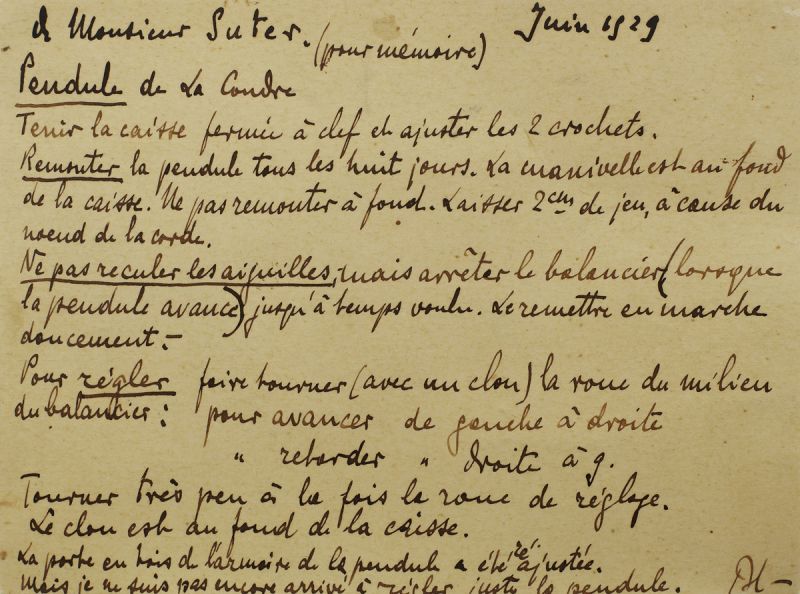 à Monsieur Suter. (pour mémoire) Juin 1929
Pendule de La Coudre
Tenir la caisse fermée à clef et ajuster les 2 crochets.
Remonter la pendule tous les huit jours. La manivelle est au fond
de la caisse. Ne pas remonter à fond. Laisser 2 cm de jeu, à cause du
noeud de la corde.
Ne pas reculer les aiguilles, mais arrêter le balancier (lorsque
la pendule avance) jusqu'à temps voulu. Le remettre en marche
doucement.-
Pour régler faire tourner (avec un clou) la roue du milieu
du balancier : pour avancer de gauche à droite
" retarder " droite à g.
Tourner très peu à la fois la roue de réglage.
Le clou est au fond de la caisse.
La porte en bois de l'armoire de la pendule a été réajustée.
Mais je ne suis pas encore arrivé à régler juste la pendule.